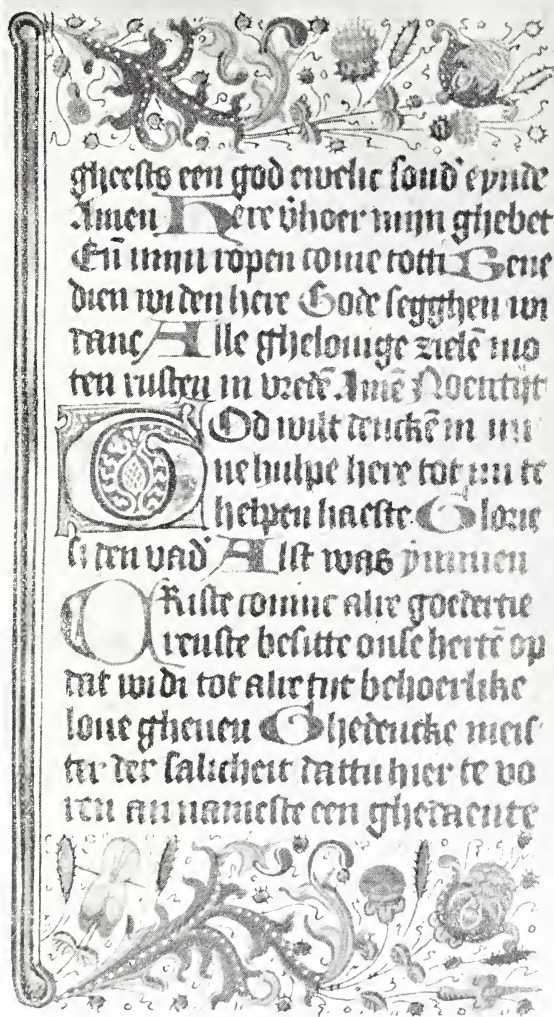 gheests een god ewelic sond' eynde
Amen Here v̄hoer mijn ghebet
En̄ mijn ropen come totti Bene
dien wi den here Gode segghen wi
danc Alle ghelouige zielē mo
ten rusten in vredē Amē Noentijt
GOd wilt dencke͂ in mi
ne hulpe here tot mi te
helpen haeste Glorie
si den vad' Alst was ynnnen
KRiste comme alre goedertie
irenste besitte onse hertē op
dat wi di tot alre tijt behoerlike
loue gheuen Ghedencke meis
ter der salicheit dattu hier te vo
ren an nameste een ghedaente